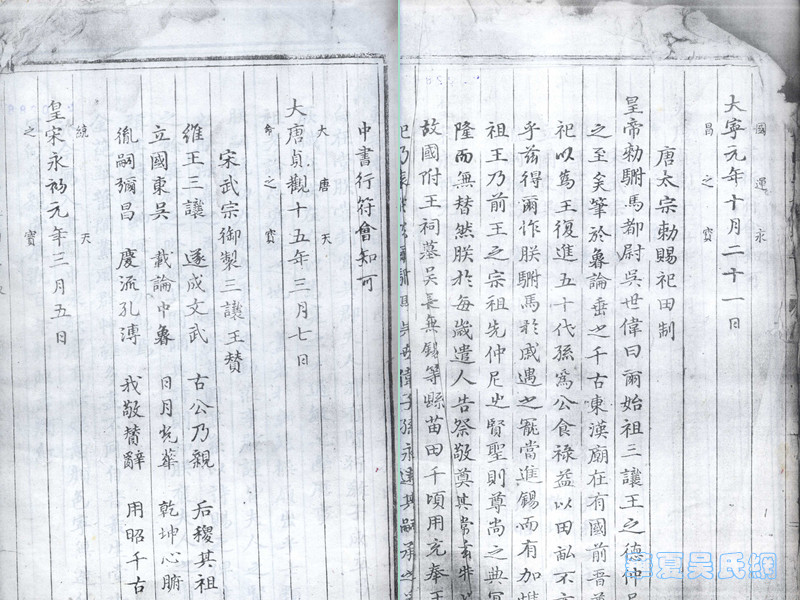 國運永
昌之寶
大寧元年十月二十一日
唐太宗勅賜祀田制
皇帝勅駙馬都尉吳世偉曰爾始祖三讓王之德仲尼
之至矣筆於魯論垂之千古東漢廟在有國前晋
祀以篤王復進五十代孫爲公食祿益以田畝不
乎茲得爾作朕駙馬於戚遇之寵當進錫而有加
祖王乃前王之宗祖先仲尼之賢聖則尊尚之典
隆而無替然朕於每歲遣人告祭敬奠其常
故國附王祠墓吳長無錫等縣苗田千頃用充奉王
偉子孫永達其嗣承之
中書行符會知可
大唐天
命之寶
大唐貞觀十五年三月七日
宋武宗御製三讓王贊
維王三讓 遂成文武 古公乃親 后稷其祖
立國東吳 載論中魯 日月光華 乾坤心腑
後嗣彌昌 慶流孔溥 我敬替辭 用昭千古
統天
之寶
皇宋永初元年三月五日
華夏吳氏網